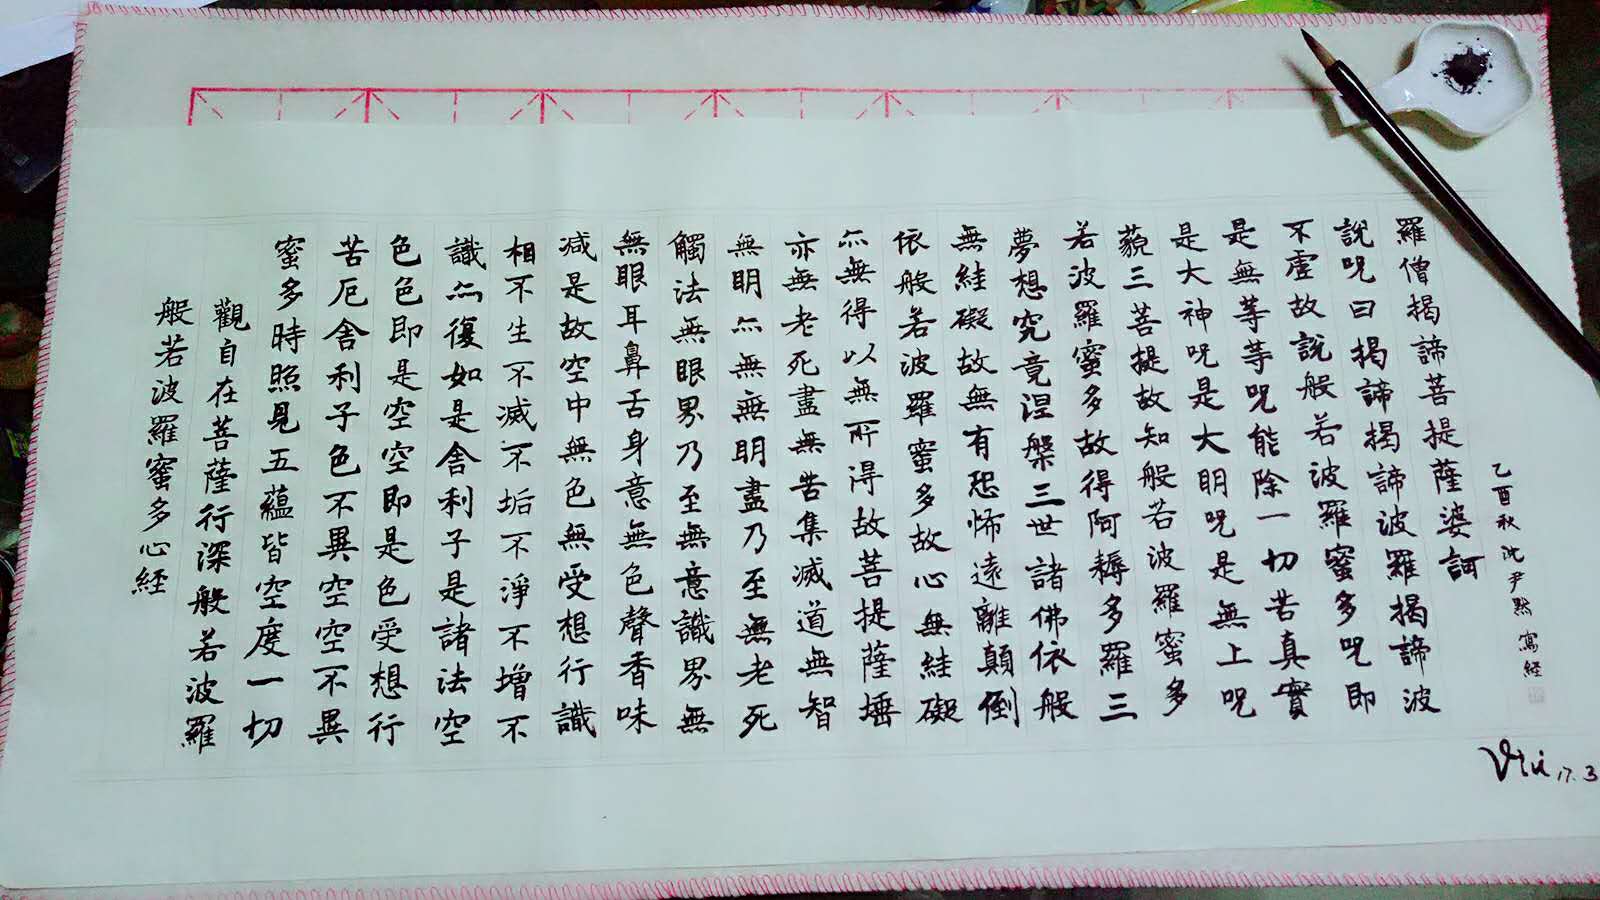 般若波羅蜜多心経
觀自在菩薩行深般若波羅
蜜多時照見五蘊皆空度一切
苦厄舍利子色不異空空不異
色色即是空空即是色受想行
識亦復如是舍利子是諸法空
相不生不滅不垢不淨不增不
减是故空中無色無受想行識
無眼耳鼻舌身意無色聲香味
觸法無眼界乃至無意識界無
無明亦無無明盡乃至無老死
亦無老死盡無苦集滅道無智
亦無得以無所得故菩提薩埵
依般若波羅蜜多故心無絓礙
無絓礙故無有恐怖遠離顛倒
夢想究竟涅槃三世諸佛依般
若波羅蜜多故得阿耨多羅三
藐三菩提故知般若波羅蜜多
是大神呪是大明呪是無上呪
是無等等呪能除一切苦真實
不虛故說般若波羅蜜多呪即
說呪曰揭諦揭諦波羅揭諦波
羅僧揭諦菩提薩婆訶
乙酉秋 沈尹默 寫経
17.3